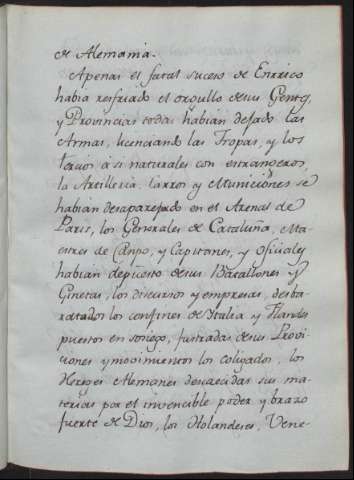 de Alemania.
Apenas el fatal suceso de Enrrico
havia resfriado el orgullo desus Gentes,
y Provincias todas habian dejado las
Armas, licenciando las Tropas, y los
tercios asi naturales con estrangeros,
la Artilleria, Carros y Municiones se
habian desaparejado en el Arenas de
Paris, los Generales de Cataluña, Ma-
estres de Campo, y Capitanes, y Oficiales
habian depuesto desus Batallones y
Ginetas, los discursos y empresas, desba-
ratados los confines de Italia y Flandes
puestos en sosiego, frustradas desus Provi-
ciones y movimientos los coligados, los
Hereges Alemanes desvanecidas sus ma-
terias por el invencible poder y brazo
fuerte de Dios, los Holandeses, Vene-